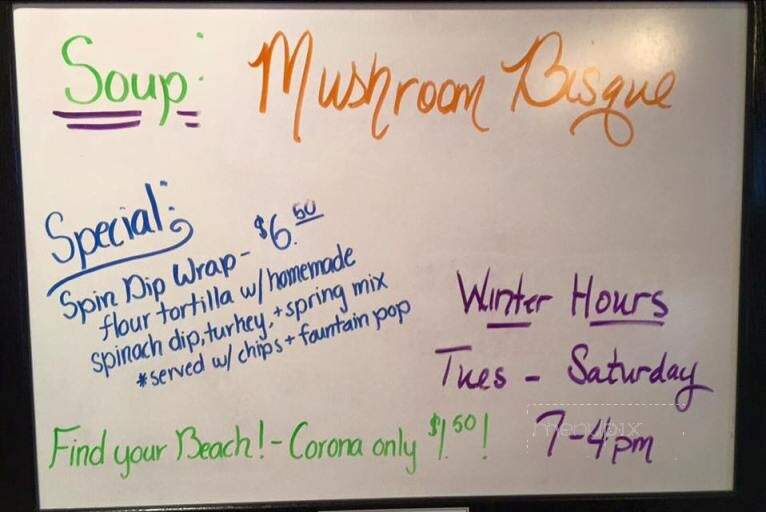 Soup: Mushroom Bisque
Special:
Spin Dip Wrap - $6.50
flour tortilla w/ homemade
spinach dip, turkey, + spring mix
*served w/ chips + fountain pop
Winter Hours
Tues - Saturday
7-4pm
Find your Beach! - Corona only $1.50!
menupix